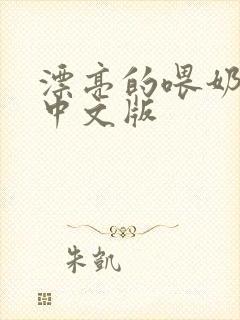 漂亮的喂奶
中文版
朱凯